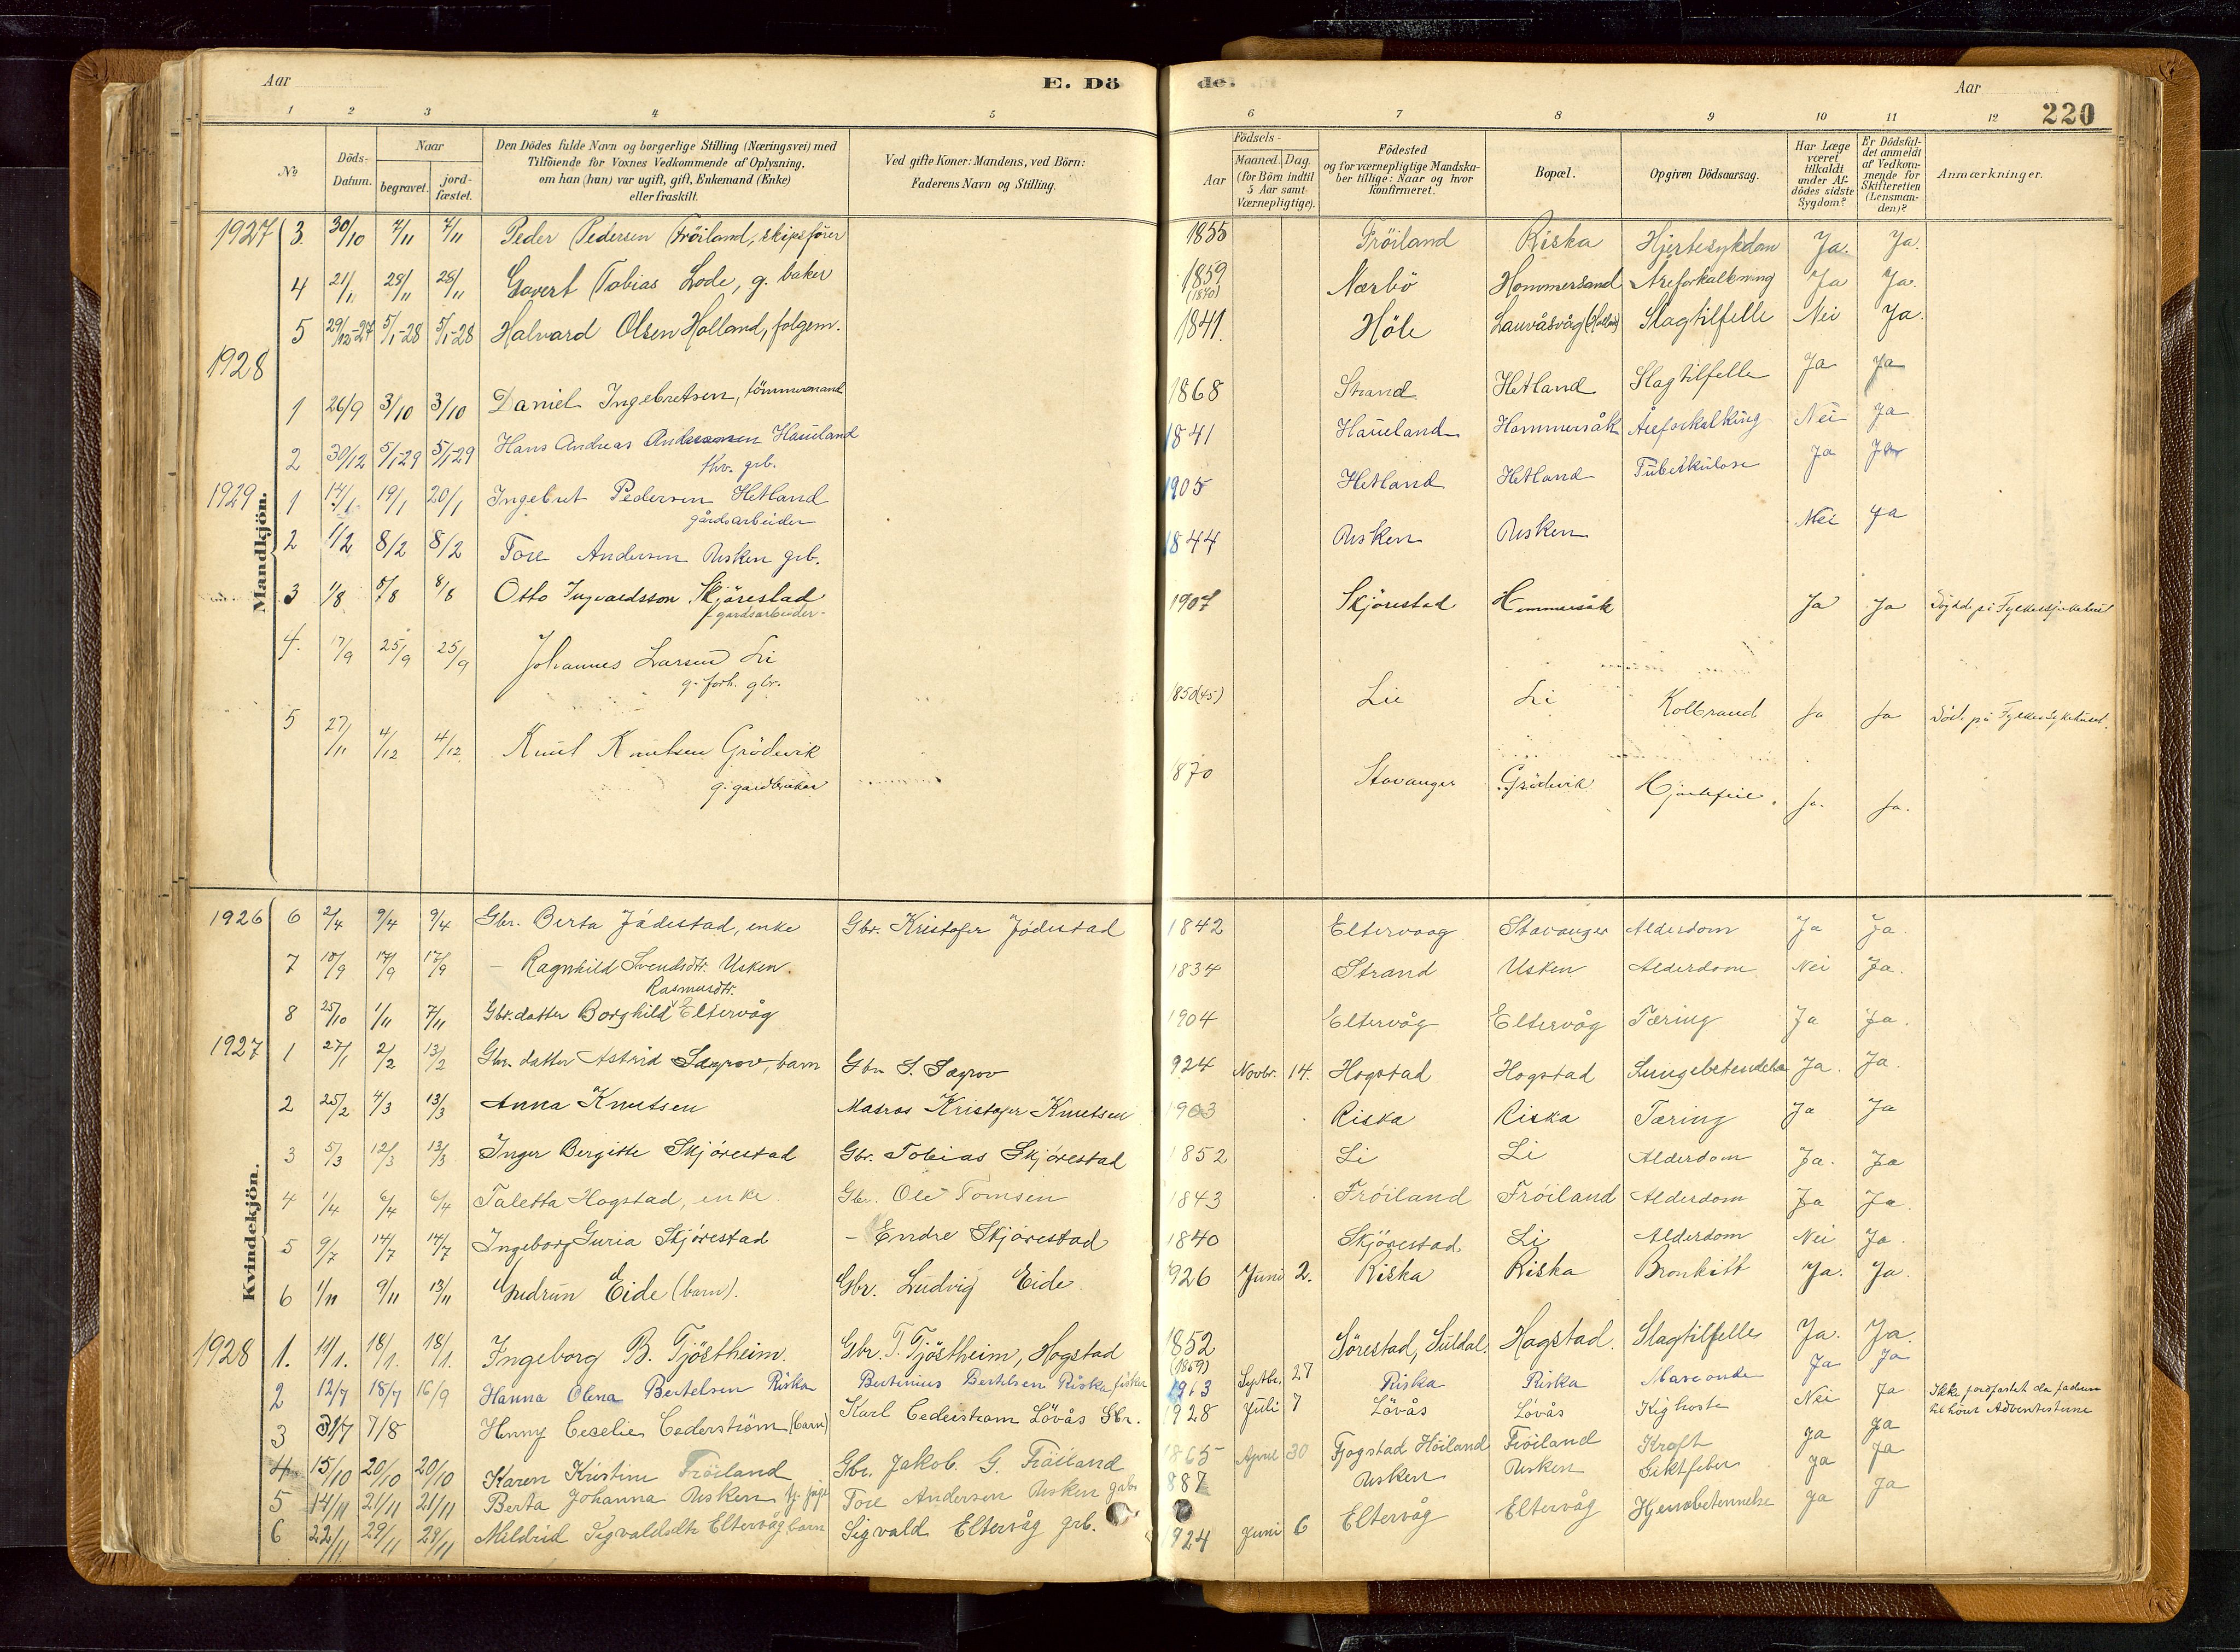 Aar E. Dö de. Aar 220
1 2 3 4 5 6 7 8 9 10 11 12
№ Döds-Datum. Naar begravet. jord-fæstet. Den Dödes fulde Navn og borgerlige Stilling (Næringsvei) med Tilföiende for Voxnes Vedkommende af Oplysning, om han (hun) var ugift, gift, Enkemand (Enke) eller fraskilt. Ved gifte Koner: Mandens, ved Börn: Faderens Navn og Stilling. Födsels- Aar Maaned. Dag. (for Börn indtil 5 Aar samt Værnepligtige). Födested og for værnepligtige Mandskaber tillige: Naar og hvor konfirmeret. Bopæl. Opgiven Dödsaarsag. Har Læge været tilkaldt under Afdödes sidste Sygdom? Er Dödsfaldet anmeldt af Vedkommende for Skifteretten (Lensmanden)? Anmærkninger.
Mandkjön.
1927 3. 30/10 7/11 7/11 Peder Pedersen Fröiland, skipsförer 1855 Fröiland Riska Hjertesykdom Ja. Ja.
4 21/11 28/11 28/11 Govert Tobias Lode, g. baker 1859 (1870) Nærbö Hommersand Åreforkalkning Ja Ja.
5 29/12-27 5/1-28 5/1-28 Halvard Olsen Holland, folgem. 1841. Höle Lauvåsvåg (Holland) Slagtilfelle Nei Ja.
1928
1 26/9 3/10 3/10 Daniel Ingebretsen, tömmermand 1868 Strand Hetland Slagtilfelle Ja Ja
2 30/12 5/1-29 5/1-29 Hans Andreas Andreassen Haueland fhv. grb. 1841 Haueland Hommersåk Åreforkalking Nei Ja
1929 1 14/1 19/1 20/1 Ingebret Pedersen Hetland gårdsarbeider 1905 Hetland Hetland Tuberkulose Ja Ja
2 1/2 8/2 8/2 Tore Andersen Usken grb. 1844 Usken Usken Nei Ja
3 1/8 8/8 8/8 Otto Ingvardsson Skjörestad gardsarbeider 1907 Skjörestad Hommersåk Ja Ja Dödde på Fylkessjukehuset
4. 17/9 25/9 25/9 Johannes Larsen Li g. forh. gbr. 1850(45) Lie Li Kolbrand Ja Ja Död på Fylkessykehuset.
5 27/11 4/12 4/12 Knut Knutsen Grödevik g. gardbruker 1870 Stavanger Grödevik Hjartefeil. Ja. Ja.
Kvindekjön.
1926 6 2/4 9/4 9/4 Gbr. Berta Jödestad, enke Gbr. Kristofer Jödestad 1842 Eltervaag Stavanger Alderdom Ja Ja.
7 10/9 17/9 17/9 – Ragnhild Svendsdtr. Usken 1834 Strand Usken Alderdom Nei Ja.
8 25/10 1/11 7/11 Gbr. datter Borghild Rasmusdtr. Eltervåg 1904 Eltervåg Eltervåg Tæring Ja Ja.
1927 1 27/1 2/2 13/2 Gbr. datter Astrid Sægrov, barn Gbr S. Sægrov 1924 Novbr. 14. Hogstad Hogstad Lungebetendelse Ja. Ja.
2 25/2 4/3 13/3 Anna Knutsen Matros Kristofer Knutsen 1903 Riska Riska Tæring Ja Ja
3 5/3 12/3 13/3 Inger Bergitte Skjörestad Gbr. Tobias Skjörestad 1852 Li Li Alderdom Ja. Ja
4 1/4 6/4 6/4 Taletta Hogstad, enke Gbr. Ole Tomsen 1843 Fröiland Fröiland Alderdom Ja Ja.
5 9/7 14/7 14/7 Ingeborg Guria Skjörestad – Endre Skjörestad 1840 Skjörestad Li Alderdom Nei Ja.
6 1/11 9/11 13/11 Gudrun Eide (barn). Gbr. Ludvig Eide. 1926 Juni 2. Riska Riska Bronkitt Ja. Ja.
1928 1. 11/1. 18/1. 18/1. Ingeborg B. Tjöstheim. Gbr. T. Tjöstheim, Hogstad 1852 (1859) Sörestad, Suldal. Hogstad. Slagtilfelle Ja. Ja.
2 12/7 18/7 16/9 Hanna Olena Bertelsen Riska Bertinius Bertelsen Riska fisker 1913 Septbr. 27 Riska Riska Ja Ja
3 31/7 7/8 Henny Cecelie Cederström (barn) Karl Cederstrøm Lövås Gbr. 1928 Juli 7 Lövås Lövås Kighoste Nei Ja Ikke jordfæstet da faderen tilhörer Adventisterne
4 15/10 20/10 20/10 Karen Kristine Fröiland Gbr. Jakob G. Fröiland 1865 April 30 Fjogstad Höiland Fröiland Kreft Ja Ja
5 14/11 21/11 21/11 Berta Johanna Usken Tore Andersen Usken grb. 1887 Usken Usken Giktfeber Ja Ja
6 22/11 29/11 29/11 Mildrid Sigvaldsdtr Eltervåg barn Sigvald Eltervåg grb. 1924 Juni 6 Eltervåg Eltervåg Hjernebetennelse Ja Ja